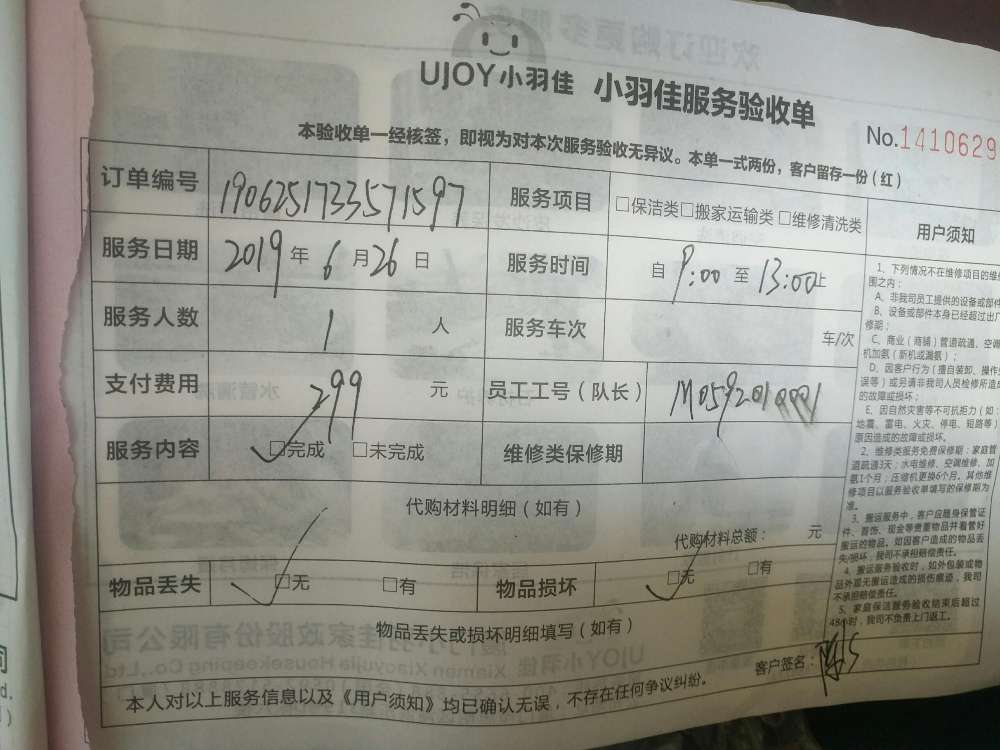 UJOY小羽佳 小羽佳服务验收单
No.1410629
本验收单一经核签，即视为对本次服务验收无异议。本单一式两份，客户留存一份（红）
订单编号 1906251733571597 服务项目 □保洁类□搬家运输类 □维修清洗类
服务日期 2019 年 6 月 26 日 服务时间 自 9:00 至 13:00止
服务人数 1 人 服务车次 车/次
支付费用 299 元 员工工号（队长） M0592010001
服务内容 □完成 □未完成 维修类保修期
代购材料明细（如有）
代购材料总额： 元
物品丢失 □无 □有 物品损坏 □无 □有
物品丢失或损坏明细填写（如有）
客户签名：
本人对以上服务信息以及《用户须知》均已确认无误，不存在任何争议纠纷。
用户须知
1、下列情况不在维修项目的维修
围之内：
A、非我司员工提供的设备或部件
B、设备或部件本身已经超过出厂
修期；
C、商业（商铺）管道疏通、空调
机加氨（新机或漏氨）；
D、因客户行为（擅自装卸、操作失
误等）或另请非我司人员检修所造成
的故障或损坏；
E、因自然灾害等不可抗拒力（如：
地震、雷电、火灾、停电、短路等）
原因造成的故障或损坏。
2、维修类服务免费保修期：家庭管
道疏通3天；水电维修、空调维修、加
氨1个月；压缩机更换6个月。其他维
修项目以服务验收单填写的保修期为
准。
3、搬运服务中，客户应随身保管证
件、首饰、现金等贵重物品并看管好
搬运的物品。如因客户造成的物品丢
失/损坏，我司不承担赔偿责任。
4、搬运服务验收时，如外包装或物
品外观无搬运造成的损伤痕迹，我司
不承担赔偿责任。
5、家庭保洁服务验收结束后超过
48小时，我司不负责上门返工。